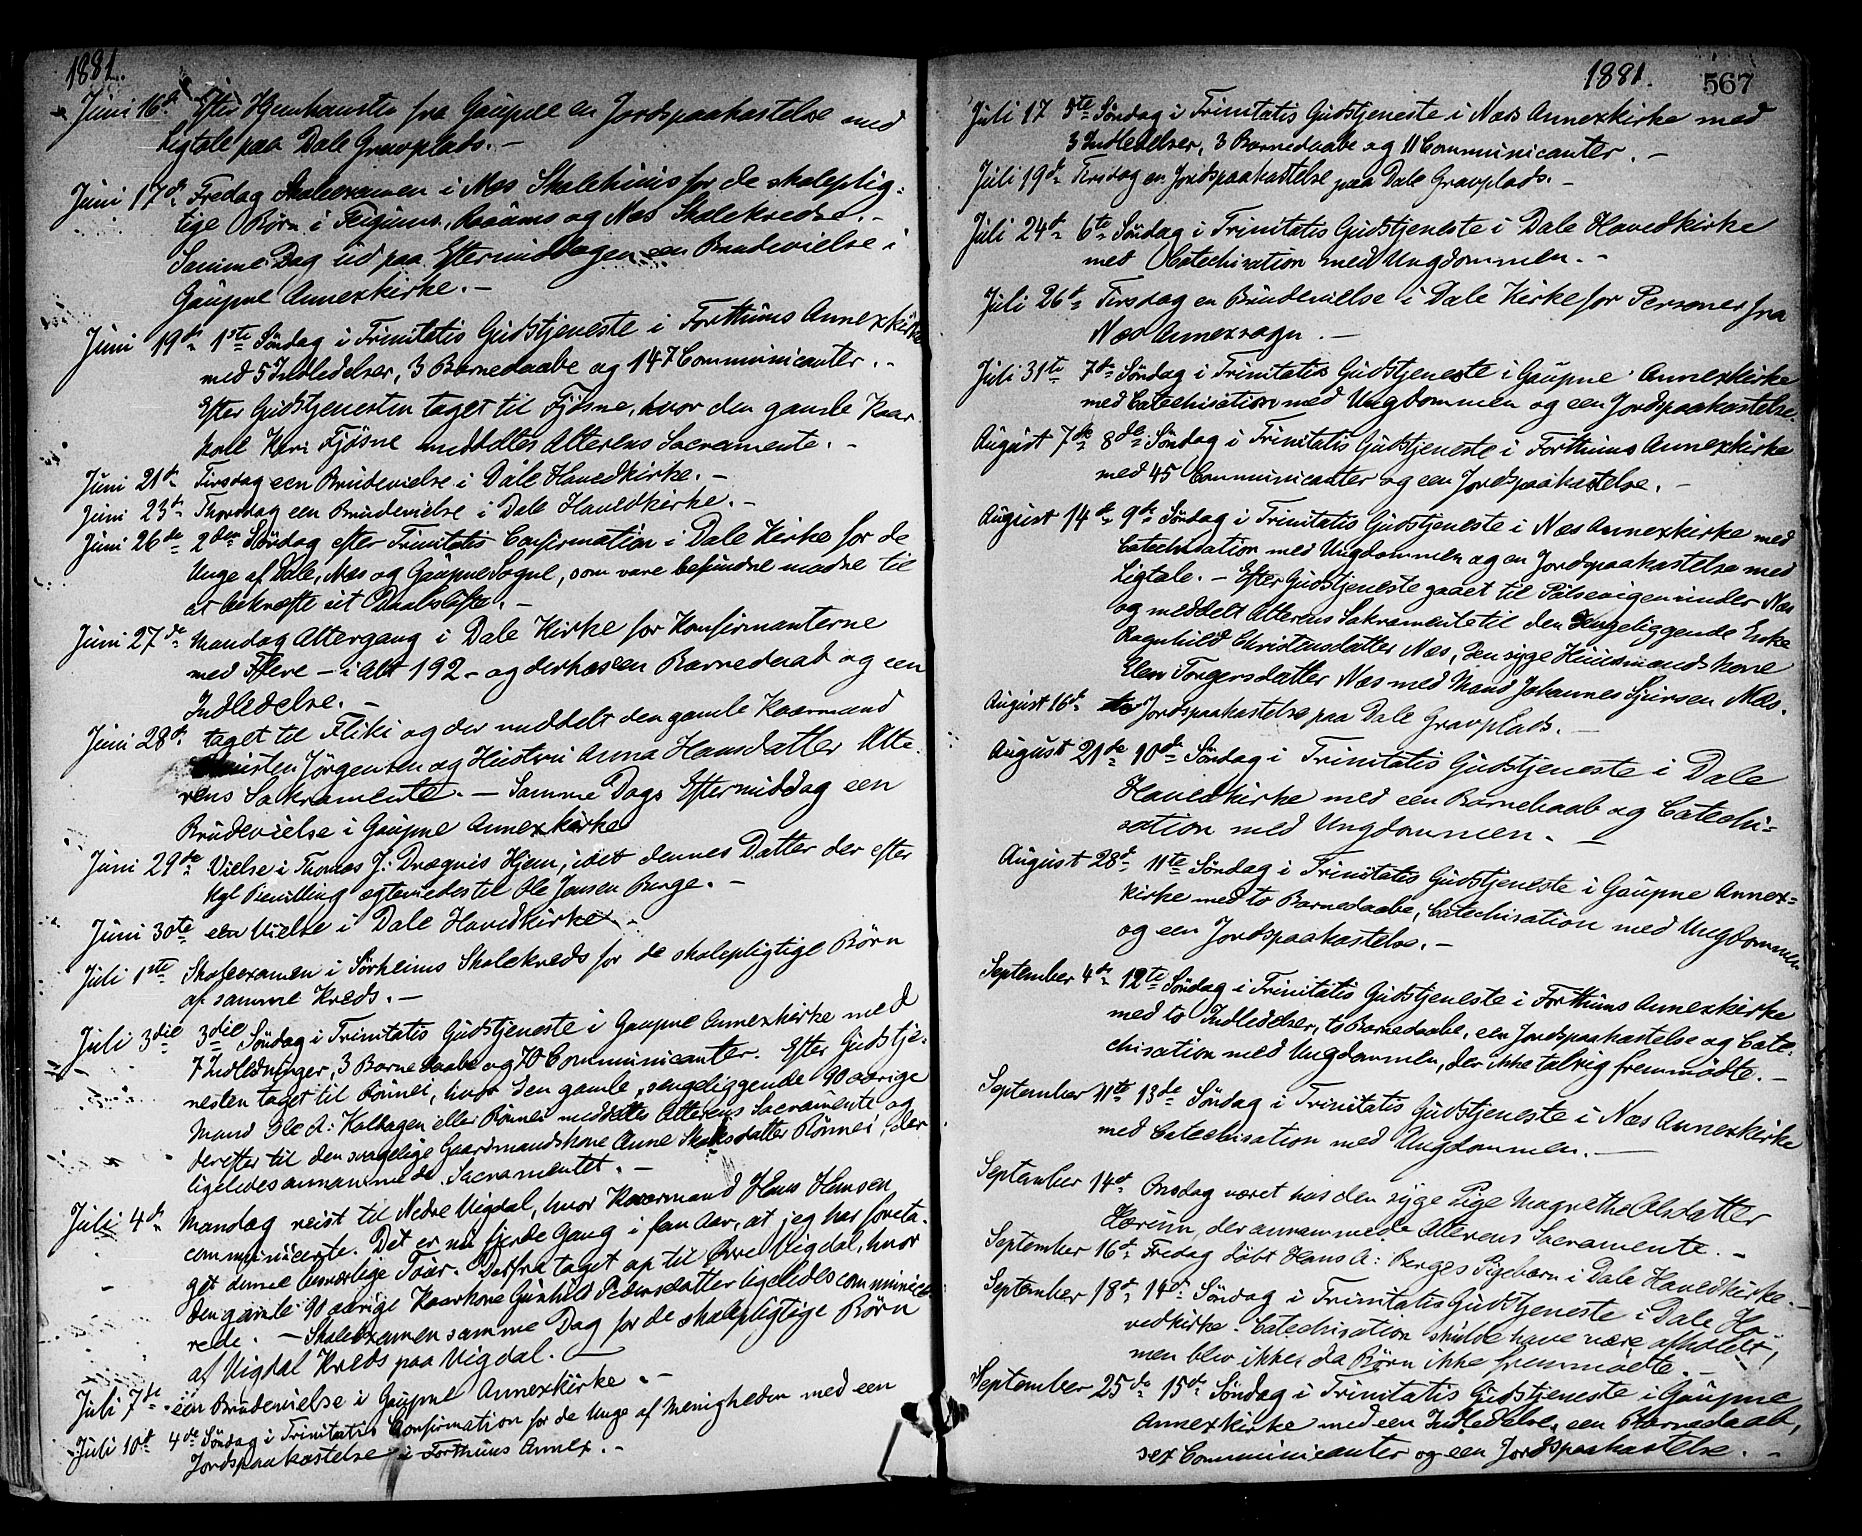 1881.
Juni 16de Efter Hjemkomsten fra Gaupne en Jordspaakastelse med
Ligtale paa Dale Gravplads. –
Juni 17de Fredag Skoleexamen i Næs Skolehuus for de skoleplig-
tige Børn i Flugums, Raaums og Næs Skolekredse. –
Samme Dag ud paa Eftermiddagen een Brudevielse i
Gaupne Annexkirke. –
Juni 19de 1ste Søndag i Trinitatis Gudstjeneste i Forthuns Annexkirke
med 5 Indledelser, 3 Barnedaabe og 147 Communicanter. –
Efter Gudstjenesten taget til Fjøsne, hvor den gamle Kaar
Kari Fjøsne meddeltes Alterens Sacramente. –
Juni 21de Tirsdag een Brudevielse i Dale Hovedkirke. –
Juni 23de Thorsdag een Brudevielse i Dale Hovedkirke. –
Juni 26de 2den Søndag efter Trinitatis Confirmation i Dale Kirke for de
Unge af Dale, Næs og Gaupne Sogne, som vare befundne modne til
at bekræfte sit Daabsløfte. –
Juni 27de Mandag Altergang i Dale Kirke for Konfirmanterne
med Flere – i Alt 192 – og derhos en Barnedaab og een
Indledelse. –
Juni 28de taget til Fliki og der meddelt den gamle Kaarmand
Christen Jørgensen og Hustru Anna Hansdatter Alte-
rens Sakramente. – Samme Dags Eftermiddag een
Brudevielse i Gaupne Annexkirke
Juni 29de Vielse i Thomas J: Drægnis Hjem, idet dennes Datter der efter
Kgl Bevilling ægteviedes til Ole Jensen Berge. –
Juni 30te een Vielse i Dale Hovedkirke. –
Juli 1ste Skoleexamen i Sørheims Skolekreds for de skolepligtige Børn
af samme Kreds. –
Juli 3die 3die Søndag i Trinitatis Gudstjeneste i Gaupne Annexkirke med
7 Indledninger, 3 Barnedaabe og 70 Communicanter. Efter Gudstje-
nesten taget til Rønnei, hvor den gamle, sengeliggende 90 aarige
Mand Ole A: Kalhagen eller Rønnei meddeltes Alterens Sacramente og
derefter til den svagelige Gaardmandskone Anne Skaksdatter Rønnei, der
ligeledes annammede Sacramentet. –
Juli 4de Mandag reist til Nedre Vigdal, hvor Kaarmand Hans Hansen
communicerte. Det er nu fjerde Gang i fem Aar, at jeg har foreta-
get denne besværlige Tour. Derfra taget op til Øvre Vigdal, hvor
den gamle 91 aarige Kaarkone Gunhild Pedersdatter ligeledes communice-
rede. – Skoleexamen samme Dag for de skolepligtige Børn
af Vigdal Kreds paa Vigdal. –
Juli 7de een Brudevielse i Gaupne Annexkirke. –
Juli 10de 4de Søndag i Trinitatis Confirmation for de Unge af Menigheden med een
Jordspaakastelse i Forthuns Annex. –
1881. 567
Juli 17 5te Søndag i Trinitatis Gudstjeneste i Næs Annexkirke med
3 Indledelser, 3 Barnedaabe og 11 Communicanter. –
Juli 19de Tirsdag en Jordspaakastelse paa Dale Gravplads. –
Juli 24de 6te Søndag i Trinitatis Gudstjeneste i Dale Hovedkirke
med Catechisation med Ungdommen. –
Juli 26de Tirsdag en Brudevielse i Dale Kirke for Personer fra
Næs Annexsogn. –
Juli 31te 7de Søndag i Trinitatis Gudstjeneste i Gaupne Annexkirke
med Catechisation med Ungdommen og een Jordspaakastelse.
August 7de 8de Søndag i Trinitatis Gudstjeneste i Forthuns Annexkirke
med 45 Communicanter og een Jordspaakastelse. –
August 14de 9de Søndag i Trinitatis Gudstjeneste i Næs Annexkirke med
Catechisation med Ungdommen og en Jordspaakastelse med
Ligtale. – Efter Gudstjeneste gaaet til Pølsevigen under Næs
og meddelt Alterens Sakramente til den sengeliggende Enke
Ragnhild Christensdatter Næs, den syge Huusmandskone
Elen Torgersdatter Næs med Mand Johannes Sjursen Næs.
August 16de Jordspaakastelse paa Dale Gravplads. –
August 21de 10de Søndag i Trinitatis Gudstjeneste i Dale
Hovedkirke med een Barnedaab og Catechi-
sation med Ungdommen. –
August 28de 11te Søndag i Trinitatis Gudstjeneste i Gaupne Annex-
kirke med to Barnedaabe, Catechisation med Ungdommen
og een Jordspaakastelse. –
September 4de 12te Søndag i Trinitatis Gudstjeneste i Forthuns Annexkirke
med to Indledelser, to Barnedaabe, een Jordspaakastelse og Cate-
chisation med Ungdommen, der ikke talrig fremmødte. –
September 11te 13de Søndag i Trinitatis Gudstjeneste i Næs Annexkirke
med Catechisation med Ungdommen. –
September 14de Onsdag været hos den syge Pige Magnethe Olsdatter
Hærum, der annammede Alterens Sacramente. –
September 16de Fredag døbt Hans A: Berges Pigebarn i Dale Hovedkirke. –
September 18de 14de Søndag i Trinitatis Gudstjeneste i Dale Ho-
vedkirke. Catechisation skulde have være afholdt,
men blev ikke, da Børn ikke fremmødte. –
September 25de 15de Søndag i Trinitatis Gudstjeneste i Gaupne
Annexkirke med een Indledelse, een Barnedaab,
sex Communicanter og een Jordspaakastelse. –